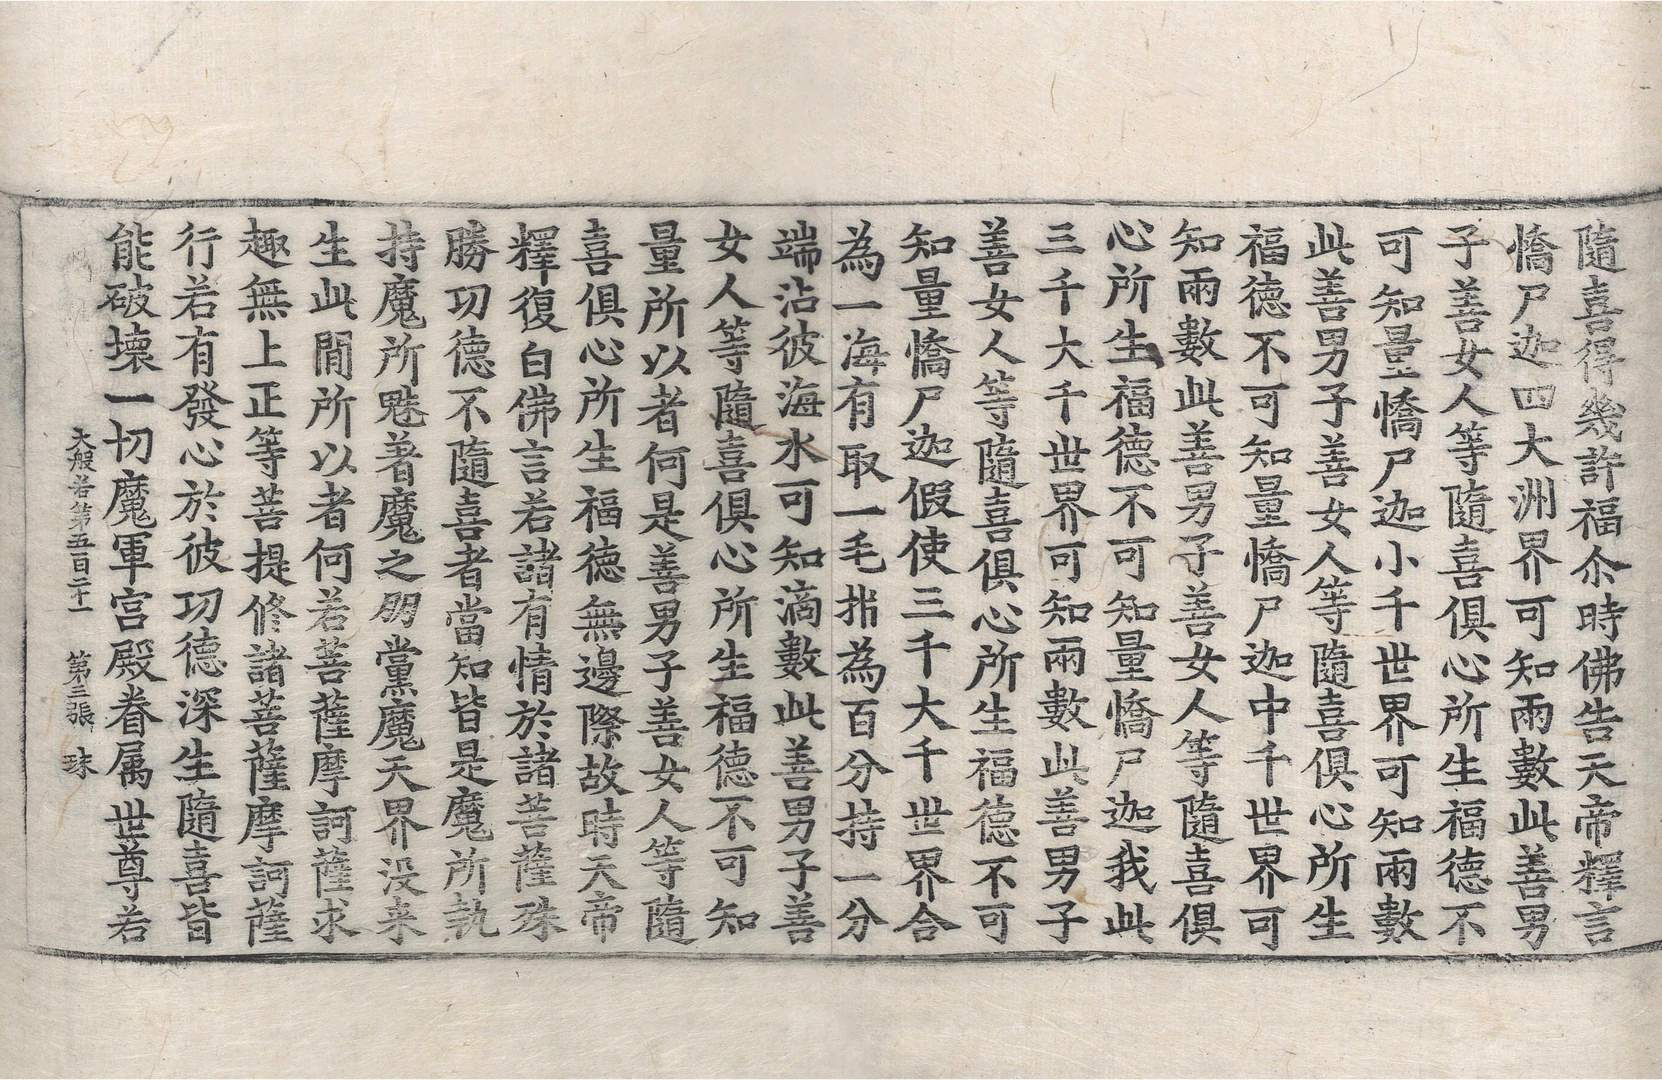 隨喜得幾許福尒時佛告天帝釋言
憍尸迦四大洲界可知兩數此善男
子善女人等隨喜俱心所生福德不
可知量憍尸迦小千世界可知兩數
此善男子善女人等隨喜俱心所生
福德不可知量憍尸迦中千世界可
知兩數此善男子善女人等隨喜俱
心所生福德不可知量憍尸迦我此
三千大千世界可知兩數此善男子
善女人等隨喜俱心所生福德不可
知量憍尸迦假使三千大千世界合
為一海有取一毛㭰為百分持一分
端沾彼海水可知滴數此善男子善
女人等隨喜俱心所生福德不可知
量所以者何是善男子善女人等隨
喜俱心所生福德無邊際故時天帝
釋復白佛言若諸有情於諸菩薩殊
勝功德不隨喜者當知皆是魔所執
持魔所魅著魔之朋黨魔天界没来
生此間所以者何若菩薩摩訶薩求
趣無上正等菩提修諸菩薩摩訶薩
行若有發心於彼功德深生隨喜皆
能破壞一切魔軍宫殿眷属世尊若
大般若第五百二十一 第二張 珠